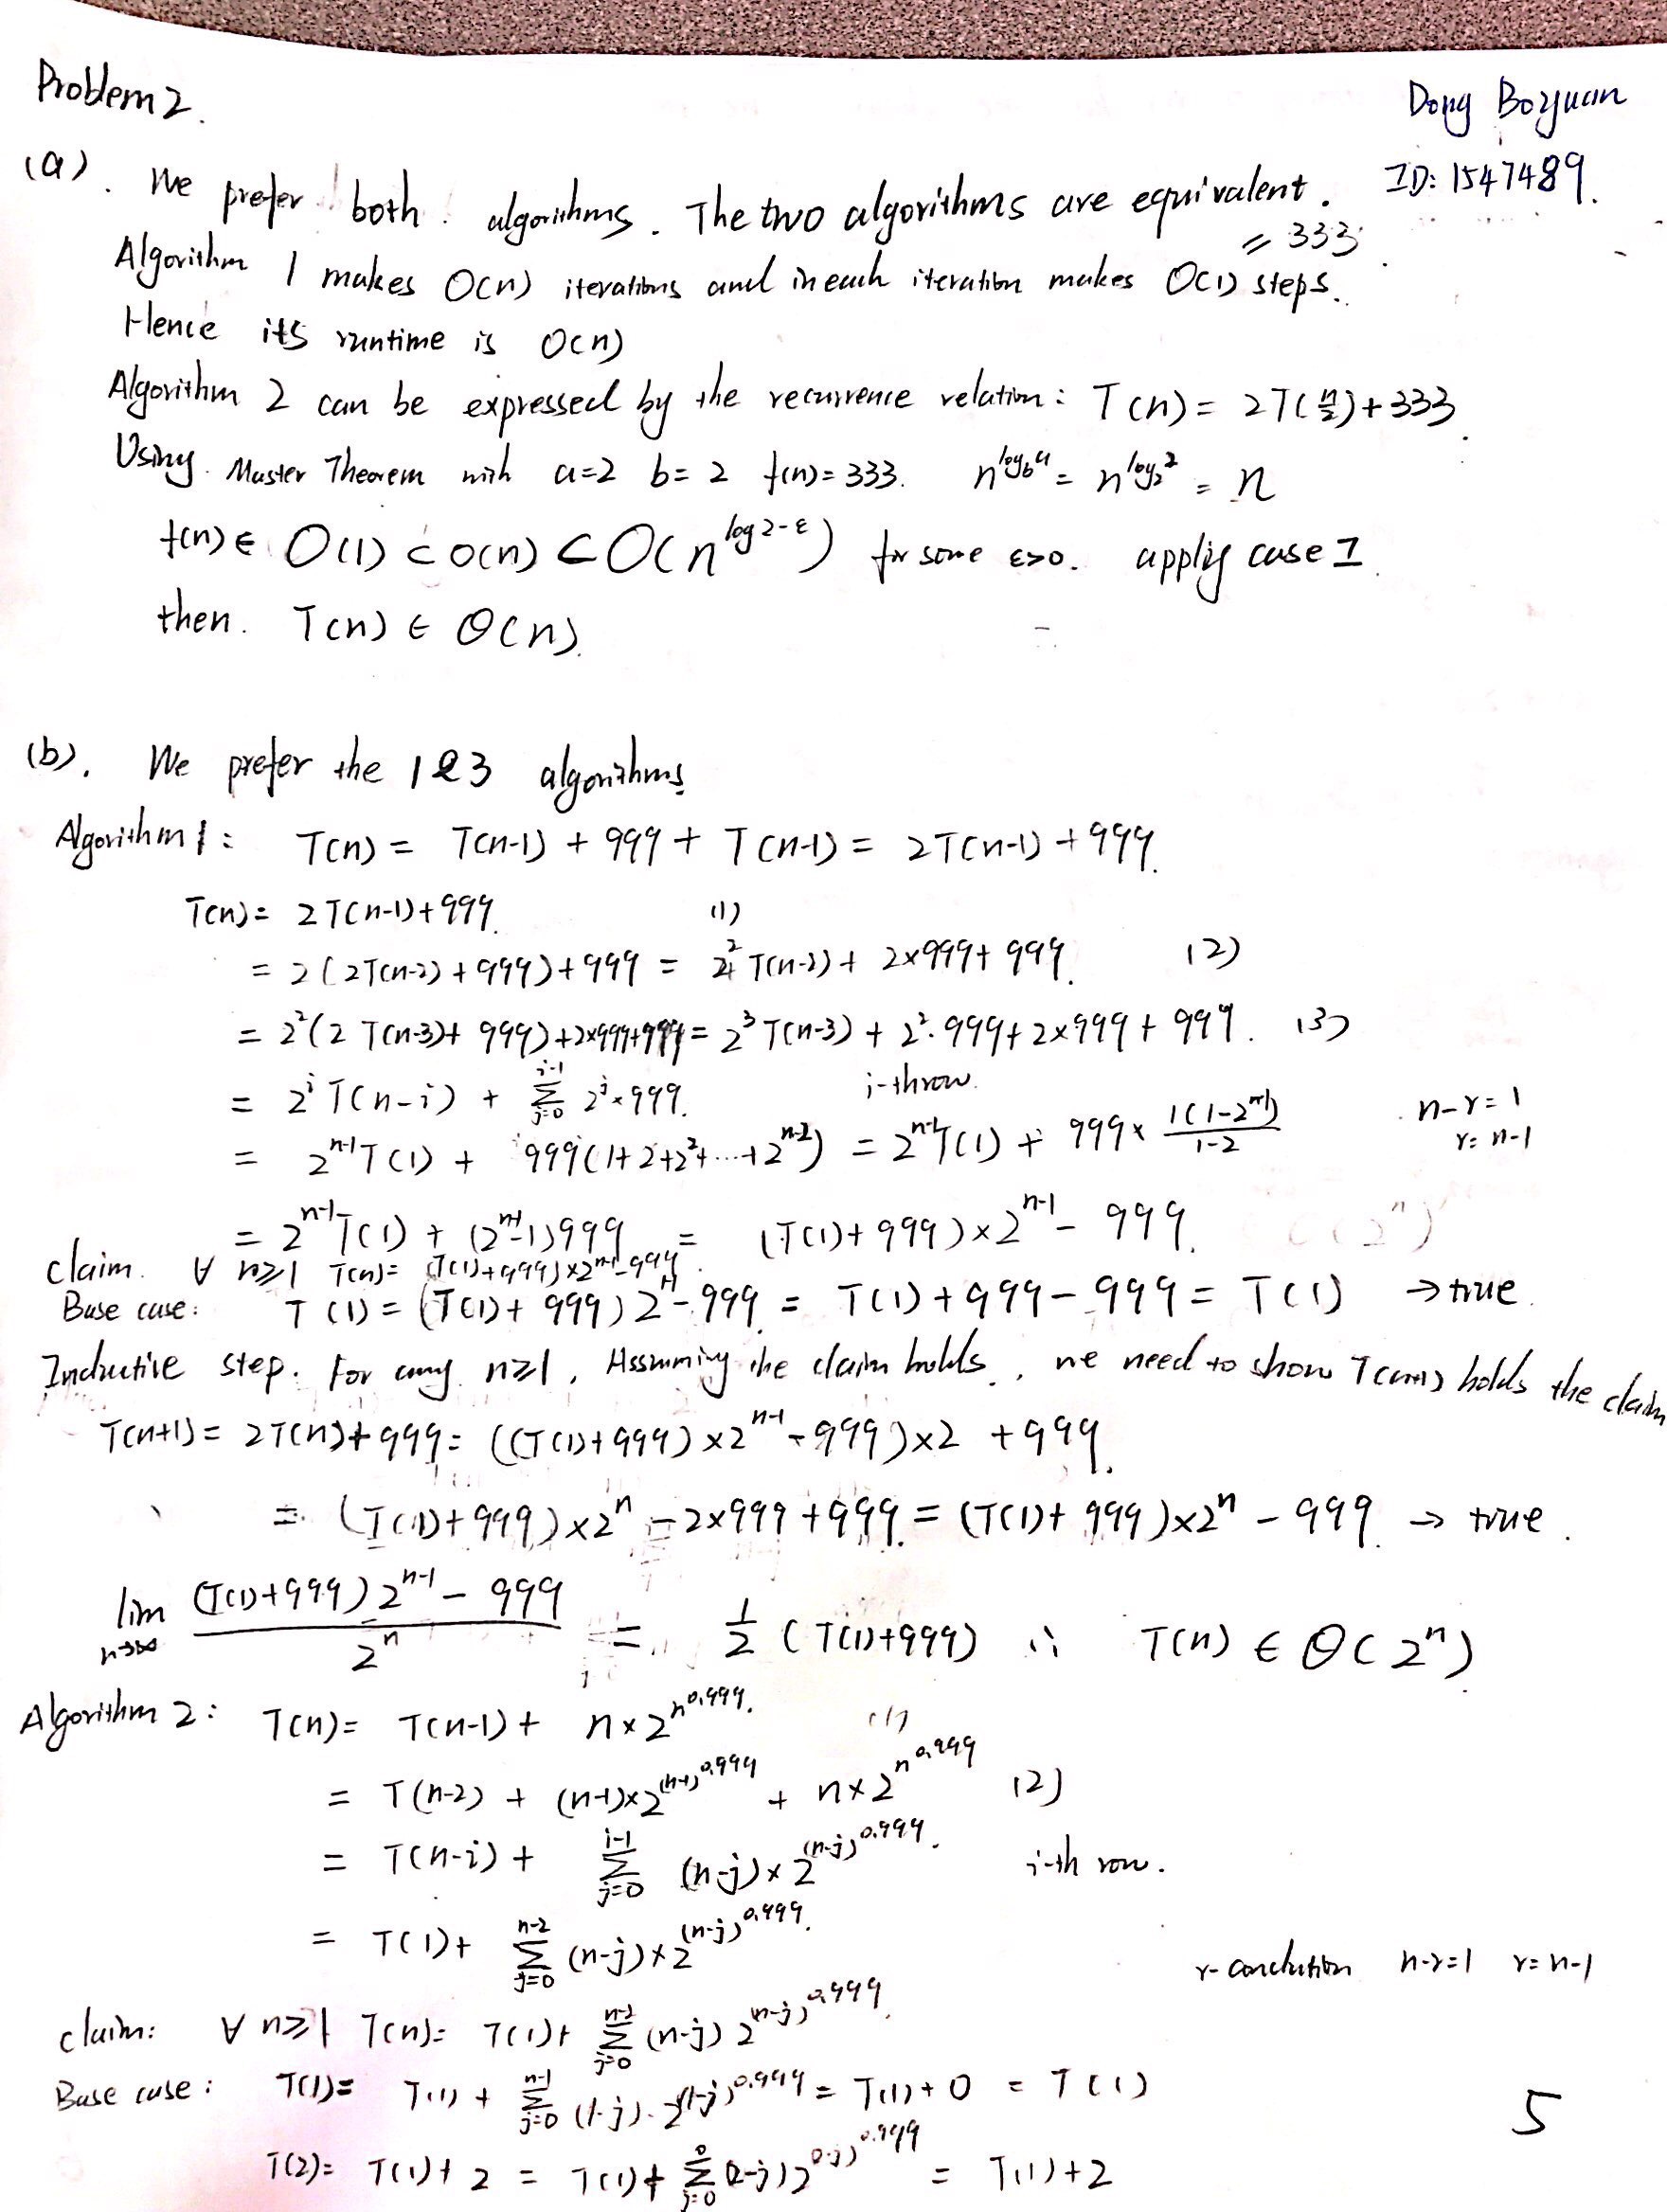 Problem 2.
Dong Boyuan
ID: 1547489.
(a). We prefer both algorithms. The two algorithms are equivalent.
= 333
Algorithm 1 makes O(n) iterations and in each iteration makes O(1) steps.
Hence its runtime is O(n)
Algorithm 2 can be expressed by the recurrence relation: T(n) = 2T(n/2) + 333.
Using Master Theorem with a=2 b=2 f(n)=333. n^{log_b a} = n^{log_2 2} = n
f(n) ∈ O(1) ⊂ O(n) ⊂ O(n^{log 2-ε}) for some ε>0. apply case 1.
then. T(n) ∈ Θ(n).
(b). We prefer the 1&3 algorithms
Algorithm 1: T(n) = T(n-1) + 999 + T(n-1) = 2T(n-1) + 999.
T(n) = 2T(n-1) + 999. (1)
= 2(2T(n-2) + 999) + 999 = 2^2 T(n-2) + 2×999 + 999. (2)
= 2^2(2T(n-3) + 999) + 2×999 + 999 = 2^3 T(n-3) + 2^2·999 + 2×999 + 999. (3)
= 2^i T(n-i) + Σ_{j=0}^{i-1} 2^j × 999. i-th row.
= 2^{n-1} T(1) + 999(1+2+2^2+...+2^{n-2}) = 2^{n-1} T(1) + 999 × 1(1-2^{n-1})/(1-2) n-r=1
r=n-1
= 2^{n-1} T(1) + (2^{n-1}-1)999 = (T(1)+999)×2^{n-1} - 999.
claim. ∀ n≥1 T(n) = (T(1)+999)×2^{n-1} - 999.
Base case: T(1) = (T(1)+999)2^{1-1} - 999 = T(1) + 999 - 999 = T(1) → true.
Inductive step. For any n≥1, Assuming the claim holds, we need to show T(n+1) holds the claim
T(n+1) = 2T(n) + 999 = ((T(1)+999)×2^{n-1} - 999)×2 + 999.
= (T(1)+999)×2^n - 2×999 + 999 = (T(1)+999)×2^n - 999. → true.
lim_{n→∞} ((T(1)+999)2^{n-1} - 999)/2^n = 1/2 (T(1)+999) ∴ T(n) ∈ Θ(2^n)
Algorithm 2: T(n) = T(n-1) + n×2^{n^{0.999}}. (1)
= T(n-2) + (n-1)×2^{(n-1)^{0.999}} + n×2^{n^{0.999}} (2)
= T(n-i) + Σ_{j=0}^{i-1} (n-j)×2^{(n-j)^{0.999}}. i-th row.
= T(1) + Σ_{j=0}^{n-2} (n-j)×2^{(n-j)^{0.999}}.
r-conclution n-r=1 r=n-1
claim: ∀ n≥1 T(n) = T(1) + Σ_{j=0}^{n-2} (n-j) 2^{(n-j)^{0.999}}.
Base case: T(1) = T(1) + Σ_{j=0}^{n-1} (1-j)·2^{(1-j)^{0.999}} = T(1) + 0 = T(1)
5
T(2) = T(1) + 2 = T(1) + Σ_{j=0}^{0} (2-j)2^{(0-j)^{0.999}} = T(1) + 2